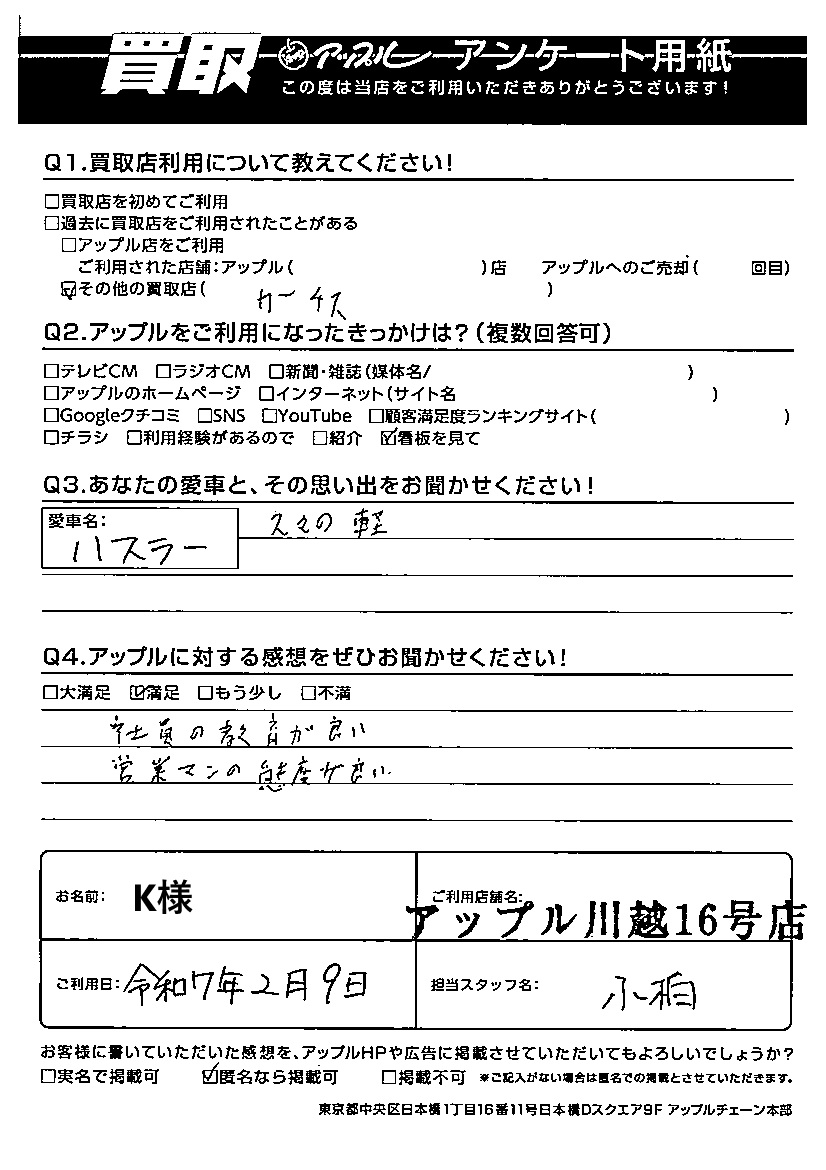 買取 アップル アンケート用紙
この度は当店をご利用いただきありがとうございます!
Q1.買取店利用について教えてください!
□買取店を初めてご利用
□過去に買取店をご利用されたことがある
□アップル店をご利用
ご利用された店舗:アップル( )店 アップルへのご売却( 回目)
☑その他の買取店( カーチス )
Q2.アップルをご利用になったきっかけは?(複数回答可)
□テレビCM □ラジオCM □新聞・雑誌(媒体名/ )
□アップルのホームページ □インターネット(サイト名 )
□Googleクチコミ □SNS □YouTube □顧客満足度ランキングサイト( )
□チラシ □利用経験があるので □紹介 ☑看板を見て
Q3.あなたの愛車と、その思い出をお聞かせください!
愛車名: 久々の軽
ハスラー
Q4.アップルに対する感想をぜひお聞かせください!
□大満足 ☑満足 □もう少し □不満
社員の教育が良い
営業マンの態度が良い
お名前: K様 ご利用店舗名:
アップル川越16号店
ご利用日: 令和7年2月9日 担当スタッフ名: 小柏
お客様に書いていただいた感想を、アップルHPや広告に掲載させていただいてもよろしいでしょうか?
□実名で掲載可 ☑匿名なら掲載可 □掲載不可 ※ご記入がない場合は匿名での掲載とさせていただきます。
東京都中央区日本橋1丁目16番11号日本橋Dスクエア9F アップルチェーン本部